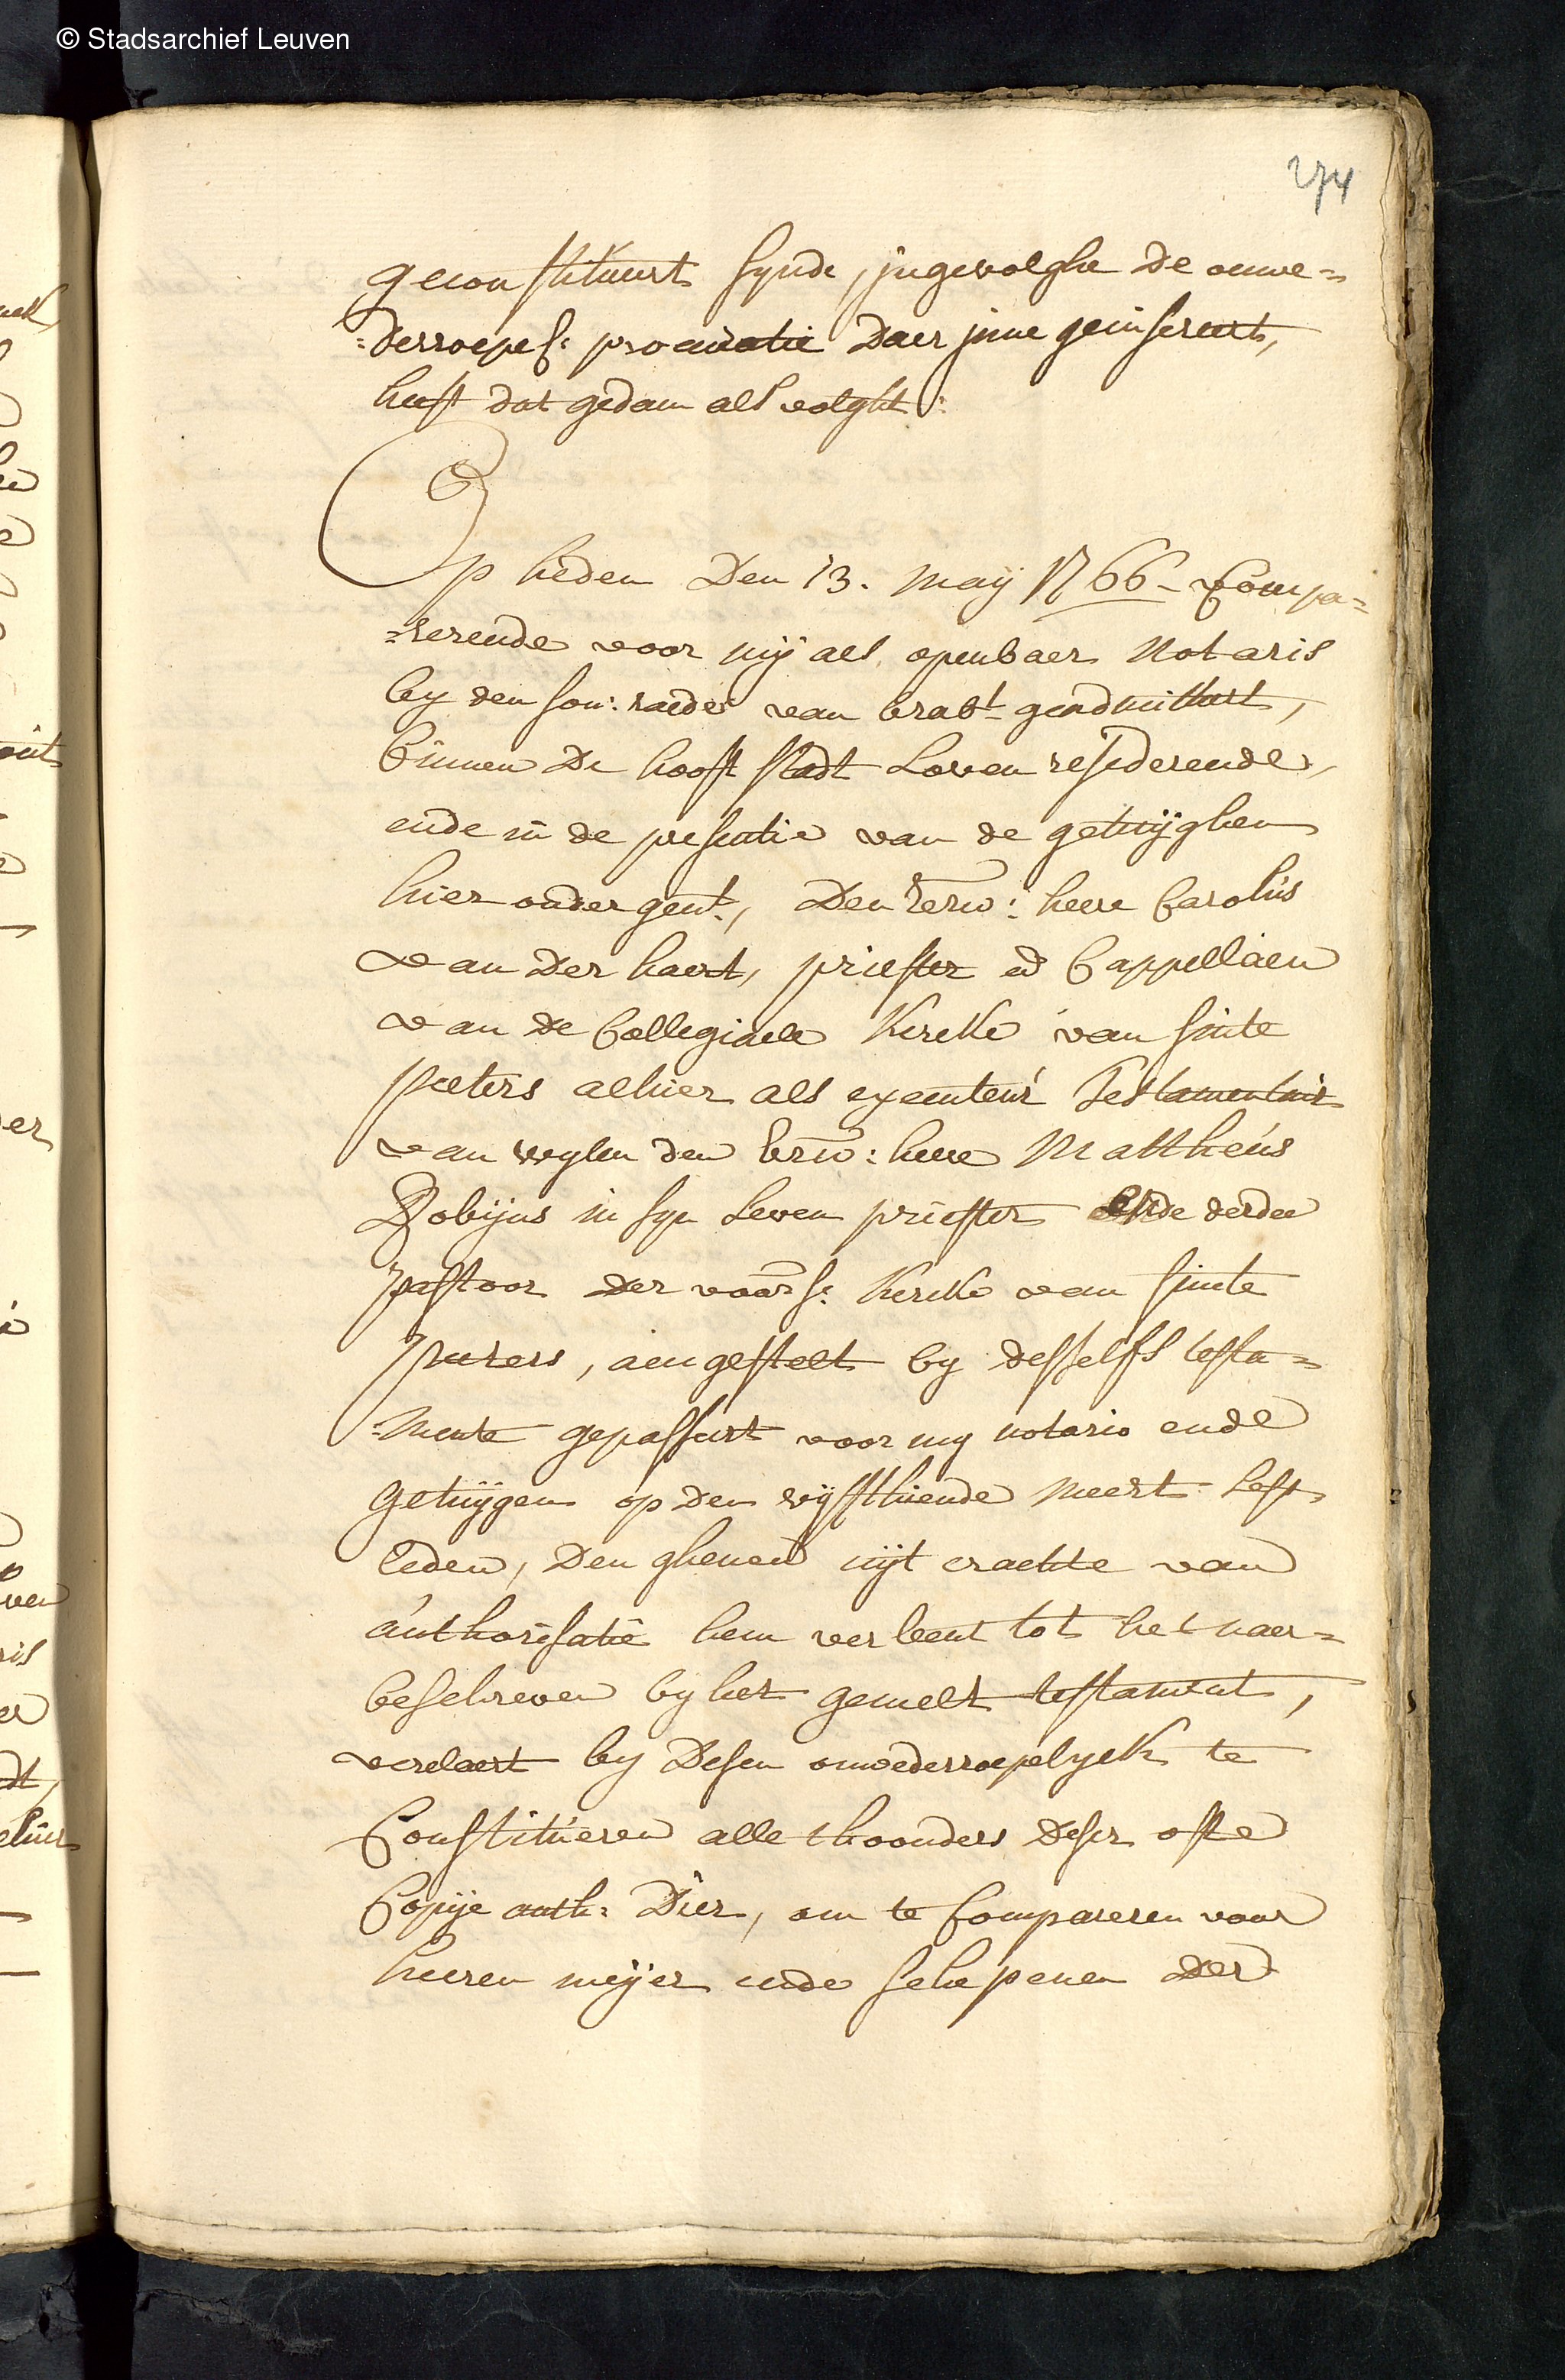 © Stadsarchief Leuven
274
geconstitueert synde, ingevolghe de onwe=
=derroepel: procuratie daer inne geinsereert,
heeft dat gedaen als volght:
Op heden den 13. maij 1766 - Compa=
=rerende voor mij als openbaer Notaris
by den sou: raede van brabt. geadmitteert,
binnen de hooft stadt Loven residerende,
ende in de presentie van de getuijghen
hier onder gent., den eerw: heere Carolus
van der haert, priester ed Cappellaen
van de Collegiaele Kercke van sinte
peeters alhier als executeur Testamentair
van wylen den Eerw: heere Mattheus
Robijns in syn Leven priester ende derden
pastoor der voors: Kercke van sinte
peeters, aengestelt by desselfs testa=
=mente gepasseert voor my notaris ende
getuygen op den vyffthiende meert lest
leden, den ghenen uijt crachte van
authorisatie hem verleent tot het naer=
beschreven by het gemelt testament,
verclaert by desen onwederroepelyck te
Constitueren alle thoonders deser ofte
Copije auth: dier, om te Compareren voor
heeren meyer ende schepenen der